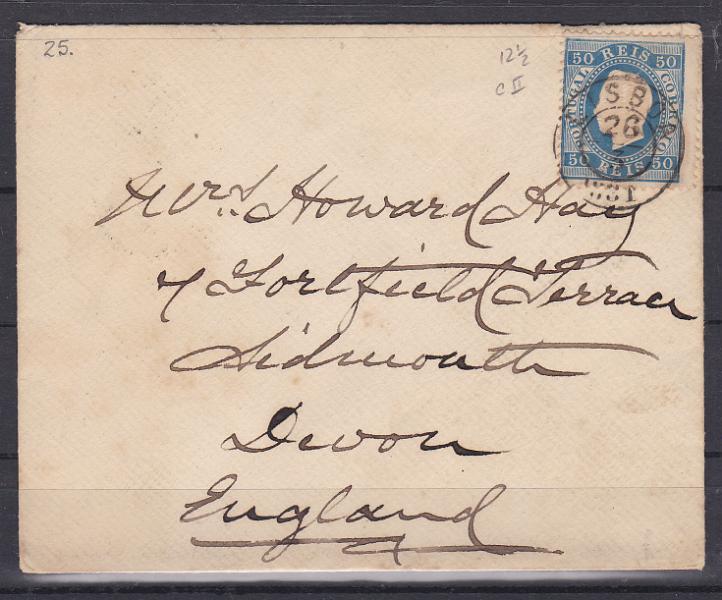 25.
12½
C II
50 REIS 50
PORTUGAL
CORREIO
50 REIS 50
LISBOA
26
Mrs Howard Hay
7 Fortfield Terrace
Sidmouth
Devon
England